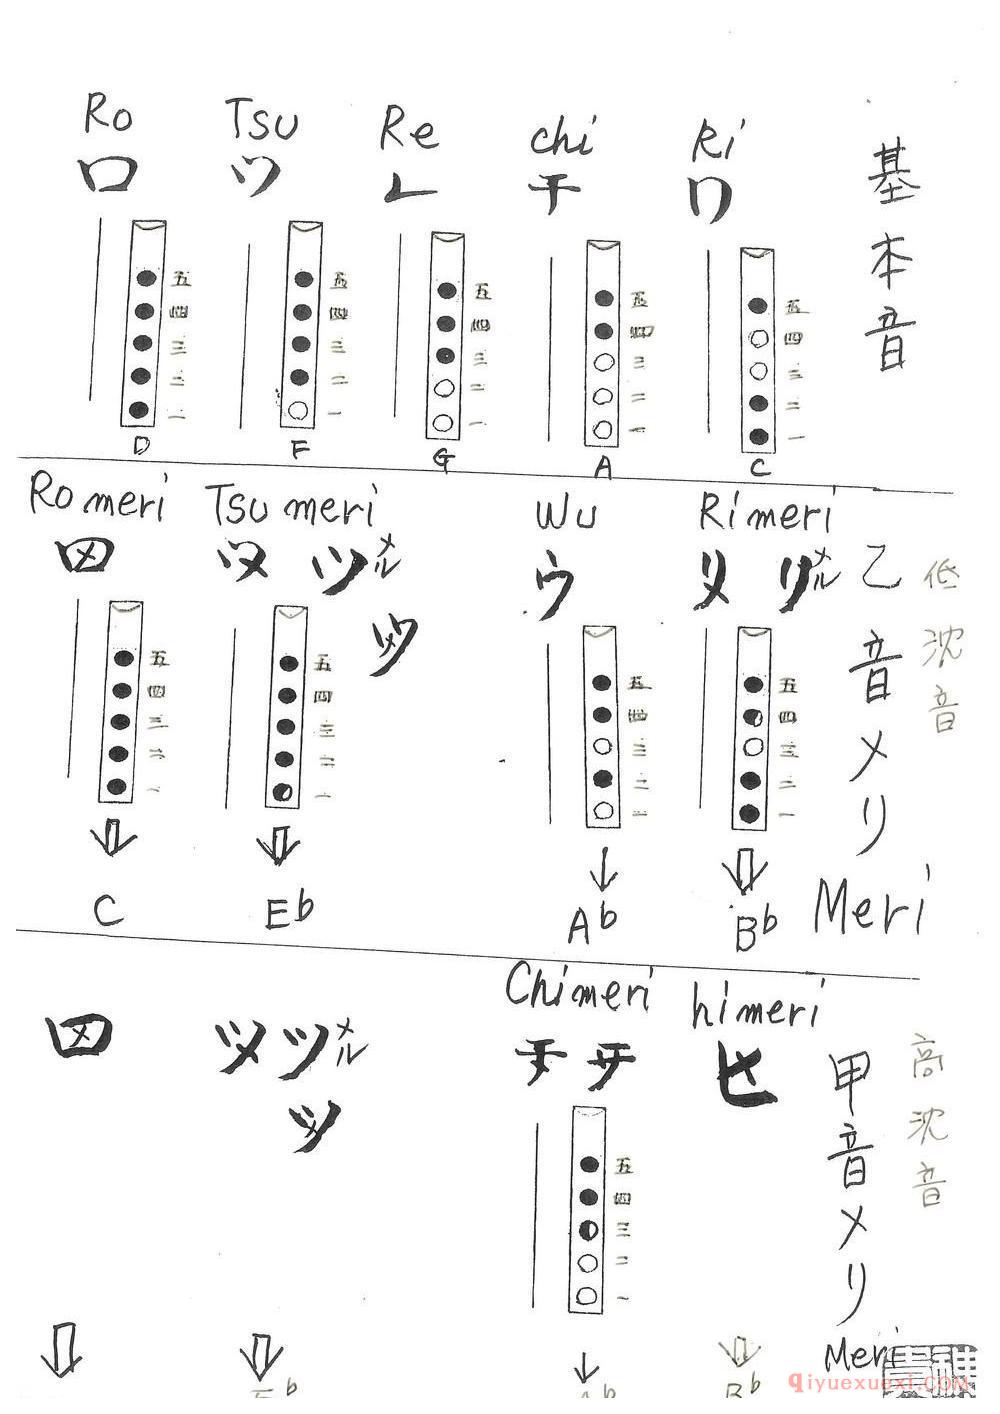 Ro Tsu Re chi Ri
ロ ツ レ チ リ
基本音
五 五 五 五 五
四 四 四 四 四
三 三 三 三 三
二 二 二 二 二
一 一 一 一 一
D F G A C
Ro meri Tsu meri Wu Ri meri
ウ
メル メル
乙音メリ
低沈音
五 五 五 五
四 四 四 四
三 三 三 三
二 二 二 二
一 一 一 一
C Eb Ab Bb
Meri
Chi meri hi meri
メル
甲音メリ
高沈音
五
四
三
二
一
Meri
b b Bb
qiyuexuexi.COM